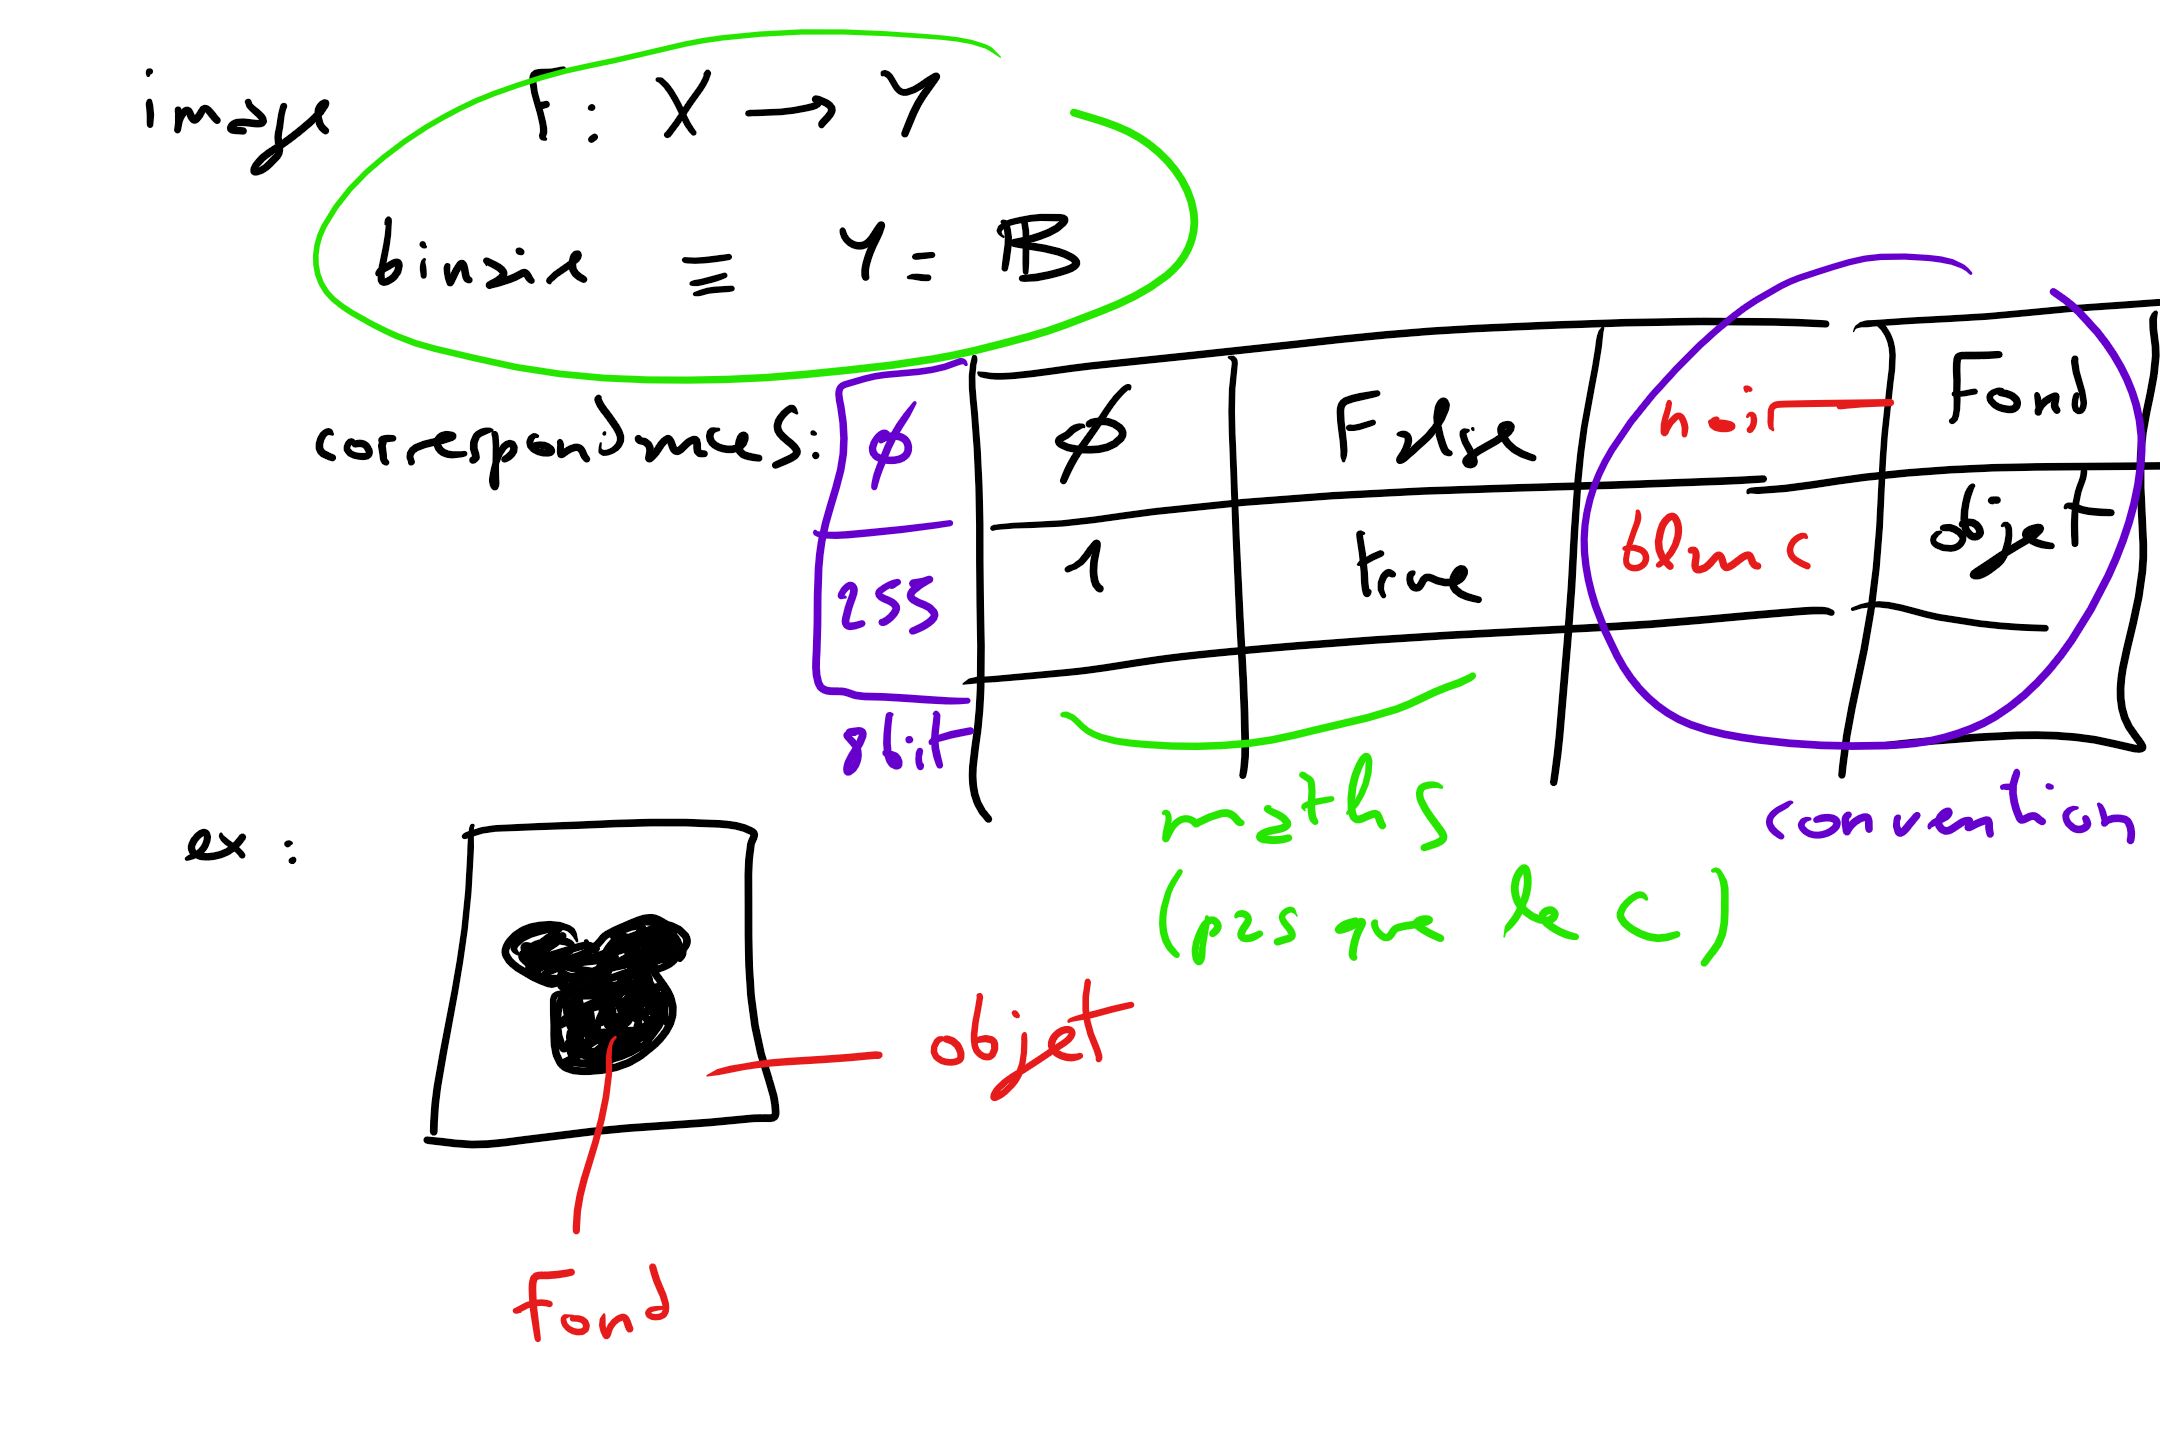 image F: X → Y
binaire ≡ Y = 𝔹
correspondances: 0 0 False noir Fond
255 1 true blanc objet
8bit
maths
(pas que le C)
convention
ex :
objet
Fond